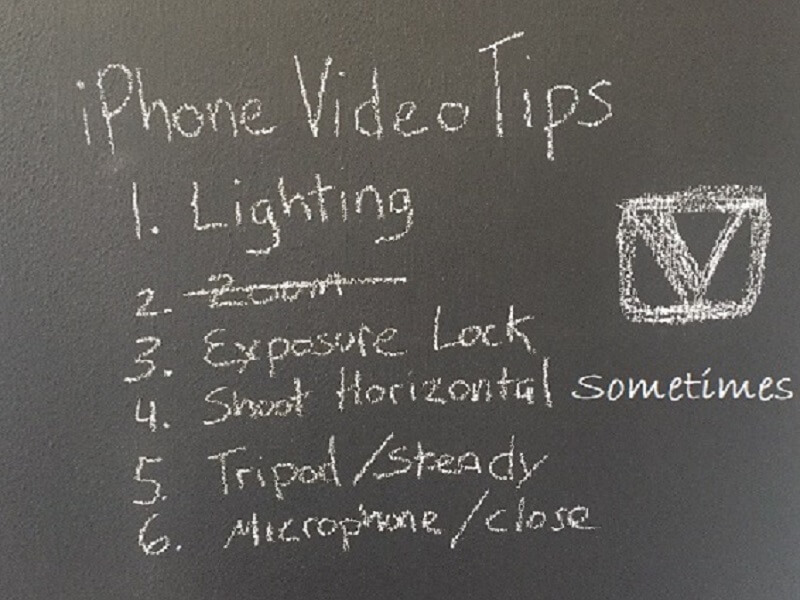 iPhone Video Tips
1. Lighting
2. Zoom
3. Exposure Lock
4. Shoot Horizontal Sometimes
5. Tripod/Steady
6. Microphone/close
V